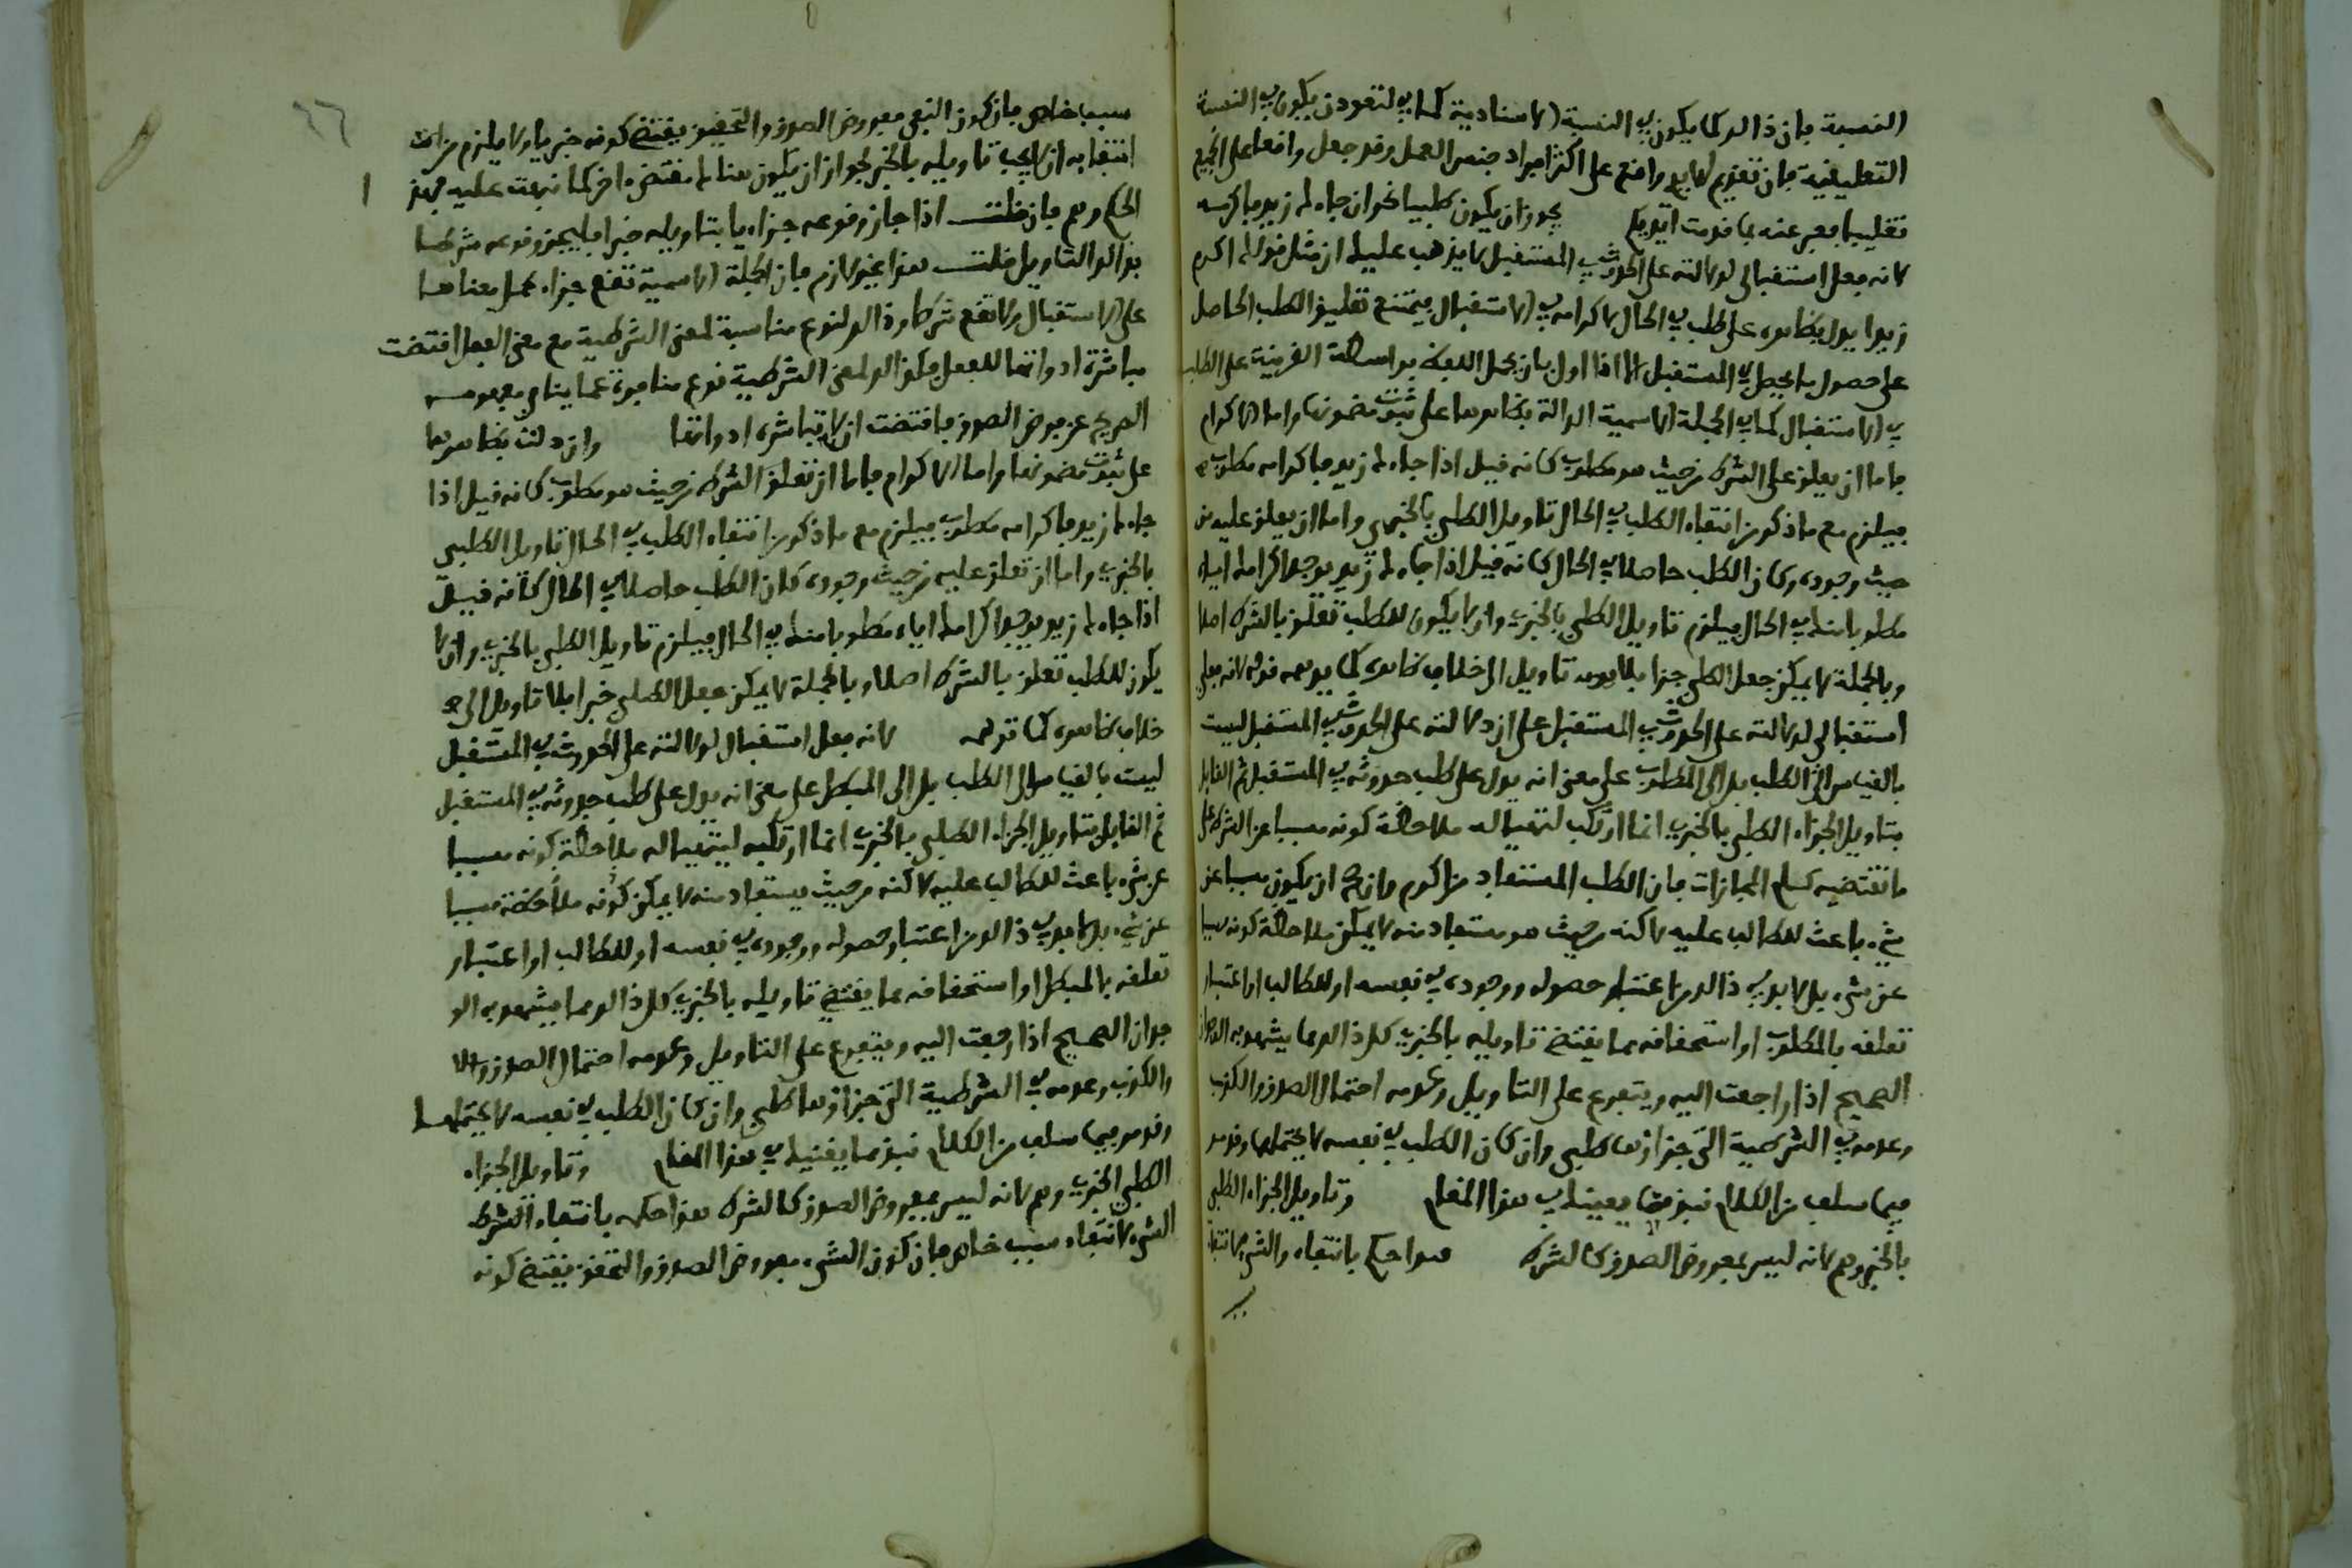 النسبة فان ذالك كما يكون في النسبة الاسنادية كما في لتعودن يكون في النسبة
التعليقية فان تقديم لها يدل واقع على اكثر افراد جنس العمل وقد جعل واقعا على الجميع
تغليبا فعبر عنه بما قدمت ايديكم يجوز ان يكون طلبيا نحو ان جاءك زيد فاكرمه
لانه فعل استقبالي لدلالته على الحدوث في المستقبل لا يذهب عليك ان مثل قولك اكرم
زيدا يدل بظاهره على طلب في الحال لاكرامه في الاستقبال فيمتنع تعليق الطلب الحاصل
على حصول ما يحصل في المستقبل الا اذا اول بان يحمل اللفظ بواسطة القرينة على الطلب
في الاستقبال كما في الجملة الاسمية الدالة بظاهرها على ثبوت مضمونها واما الاكرام
فاما ان يعلق على الشرط من حيث هو مطلوب كانه قيل اذا جاءك زيد فاكرامه مطلوب
فيلزم مع ما ذكر من انتفاء الطلب في الحال تاويل الطلبي بالخبري واما ان يعلق عليه من
حيث وجوده وكان الطلب حاصلا في الحال كانه قيل اذا جاءك زيد يوجد اكرامك اياه
مطلوبا منك في الحال فيلزم تاويل الطلبي بالخبري وان لا يكون للطلب تعلق بالشرط اصلا
وبالجملة لا يمكن جعل الطلبي جزا بلا تاويل الى خلاف ظاهره كما يوهمه قوله لانه فعل
استقبالي لدلالته على الحدوث في المستقبل على ان دلالته على الحدوث في المستقبل ليست
بالقياس الى الطلب بل الى المطلوب على معنى انه يدل على طلب حدوثه في المستقبل ثم القايل
بتاويل الجزاء الطلبي بالخبري انما ارتكب لتهيا له ملاحظة كونه مسببا عن الشرط على
ما تقتضيه كلم المجازات فان الطلب المستفاد من اكرم وان صح ان يكون مسببا عن
شيء باعث للطالب عليه لاكنه من حيث هو مستفاد منه لا يمكن ملاحظة كونه مسببا
عن شيء بل لا بد في ذالك من اعتبار حصوله ووجوده في نفسه او للطالب او اعتبار
تعلقه بالمطلوب او استحقاقه مما يقتضي تاويله بالخبري كل ذالك مما يشهد به الوجدان
الصحيح اذا راجعت اليه ويتفرع على التاويل وعدمه احتمال الصدق والكذب
وعدمه في الشرطية التي جزاؤها طلبي وان كان الطلب في نفسه لا يحتملهما وقد مر
فيما سلف من الكلام نبذ مما يعينك في هذا المقام وتاويل الجزاء الطلبي
بالخبري وهم لانه ليس بمفروض الصدق كالشرط هذا حكم بانتفاء الشيء لانتفاء
سبب
٦٦
سبب خاص فان كون الشيء مفروض الصدق والتحقيق يقتضي كونه خبريا ولا يلزم من
انتفايه ان لا يجب تاويله بالخبر لجواز ان يكون هناك مقتض اخر كما نبهت عليه فهذا
الحكم وهم فان قلت اذا جاز وقوعه جزاء يا بتاويله خبرا فليجز وقوعه شرطا
بذالك التاويل قلت هذا غير لازم فان الجملة الاسمية تقع جزاء بحمل معناها
على الاستقبال ولا تقع شرطا وذالك لنوع مناسبة لمعنى الشرطية مع معنى الفعل اقتضت
مباشرة ادواتها للفعل فكذالك لمعنى الشرطية نوع منافرة عما ينافي مفهومه
الصريح عن فرض الصدق فاقتضت ان لا تباشره ادواتها وان دلت بظاهرها
على ثبوت مضمونها واما الاكرام فاما ان تعلق الشرط من حيث هو مطلوب كانه قيل اذا
جاءك زيد فاكرامه مطلوب فيلزم مع ما ذكر من انتفاء الطلب في الحال تاويل الطلبي
بالخبري واما ان تعلق عليه من حيث وجوده كان الطلب حاصلا في الحال كانه قيل
اذا جاءك زيد يوجد اكرامك اياه مطلوبا منك في الحال فيلزم تاويل الطلبي بالخبري وان لا
يكون للطلب تعلق بالشرط اصلا وبالجملة لا يمكن جعل الطلبي خبرا بلا تاويل الى
خلاف ظاهره كما توهمه لانه فعل استقبال لدلالته على الحدوث في المستقبل
ليست بالقياس الى الطلب بل الى المطلب على معنى انه يدل على طلب حدوثه في المستقبل
ثم القايل بتاويل الجزاء الطلبي بالخبري انما ارتكبه ليتهيا له ملاحظة كونه مسببا
عن شيء باعث للطالب عليه لاكنه من حيث يستفاد منه لا يمكن كونه ملاحظة مسببا
عن شيء بل لا بد في ذالك من اعتبار حصوله ووجوده في نفسه او للطالب او اعتبار
تعلقه بالمطلب او استحقاقه مما يقتضي تاويله بالخبري كل ذالك مما يشهد به الو
جدان الصحيح اذا رجعت اليه ويتفرع على التاويل وعدمه احتمال الصدق والا
والكذب وعدمه في الشرطية التي جزاؤها طلبي وان كان الطلب في نفسه لا يحتملهما
وقد مر فيما سلف من الكلام نبذ مما يغنيك في هذا المقام وتاويل الجزاء
الطلبي الخبري وهم لانه ليس بمفروض الصدق كالشرط هذا حكم بانتفاء الشرط
الشيء لانتفاء سبب خاص فان كون الشيء مفروض الصدق والتحقق يقتضي كونه